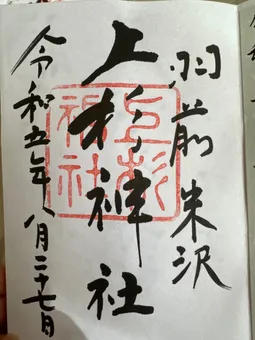 羽前米沢
上杉神社
上杉
神社
令和五年八月二十七日